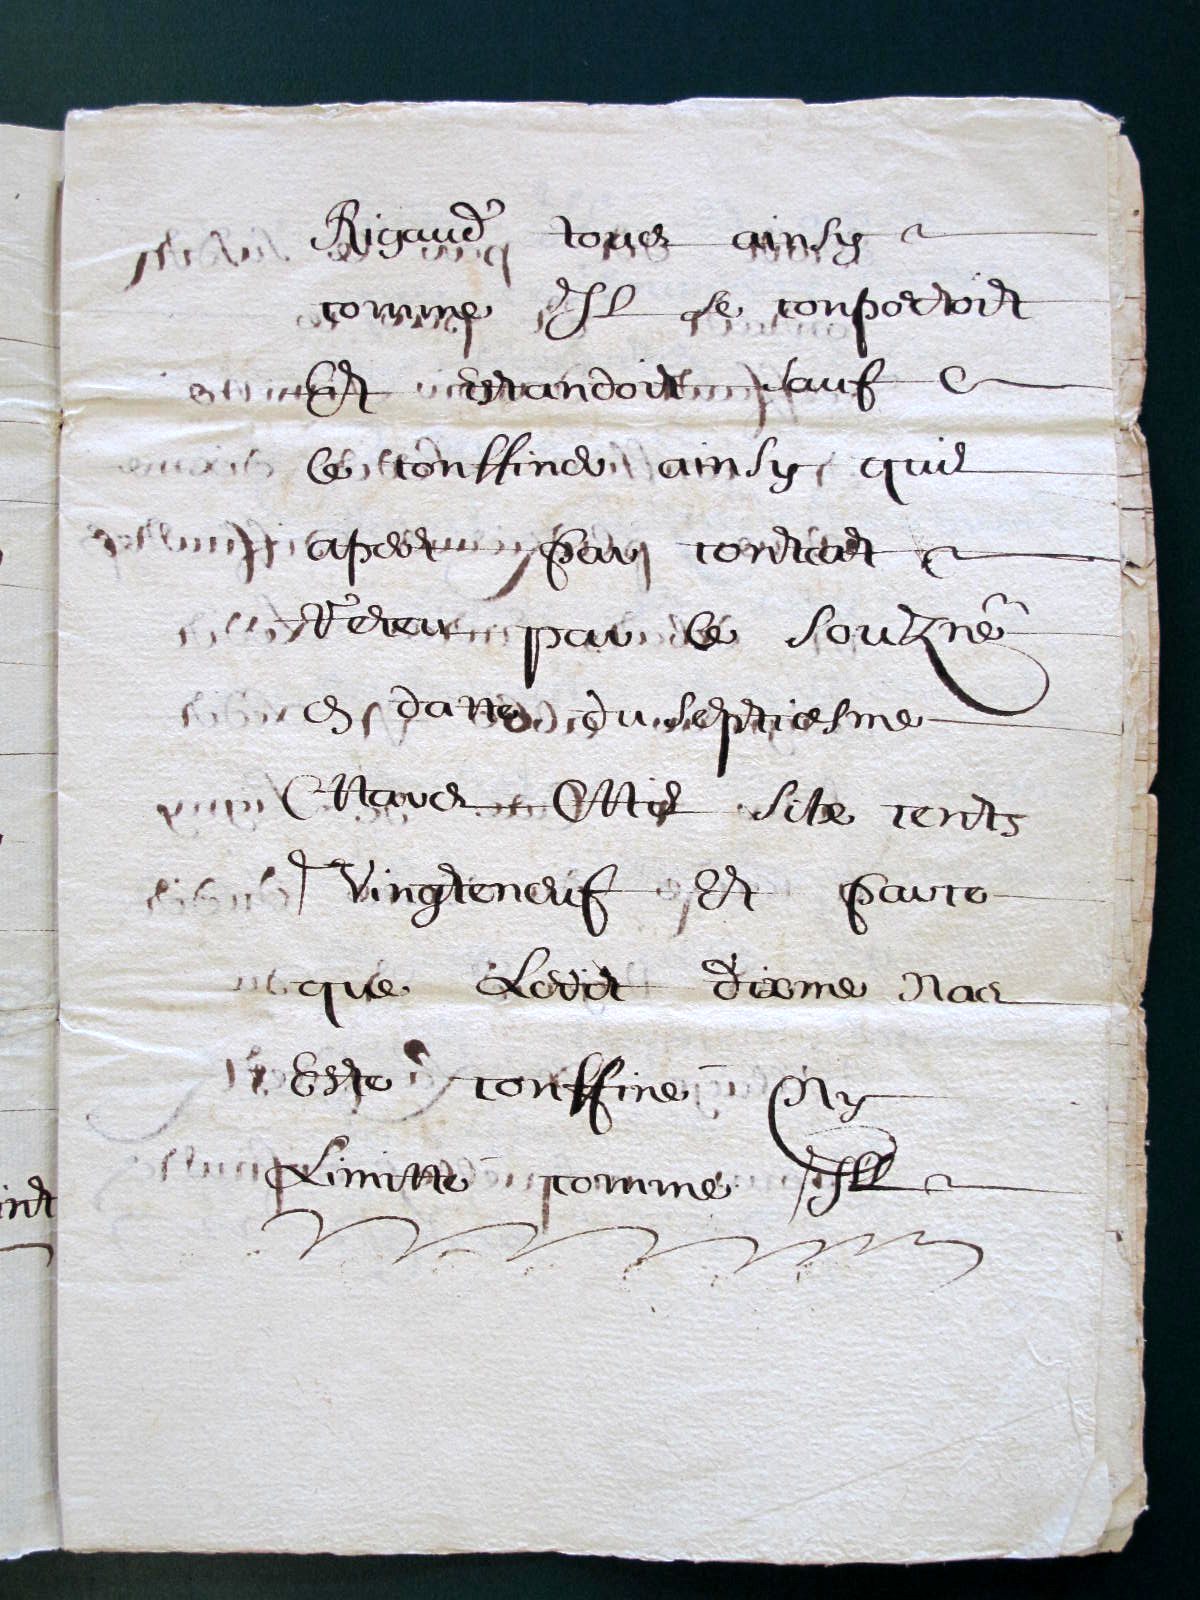 Rigaud tout ainsy
comme Il se conportoit
Et estandoit sauf
le conffiner ainsy quil
apert par contrat
receu par le soubzne
en datte du septiesme
Mars Mil six cents
Vingteneuf Et parce
que Ledit dixme Na
Esté conffiné Ny
Limitté comme Ill
int